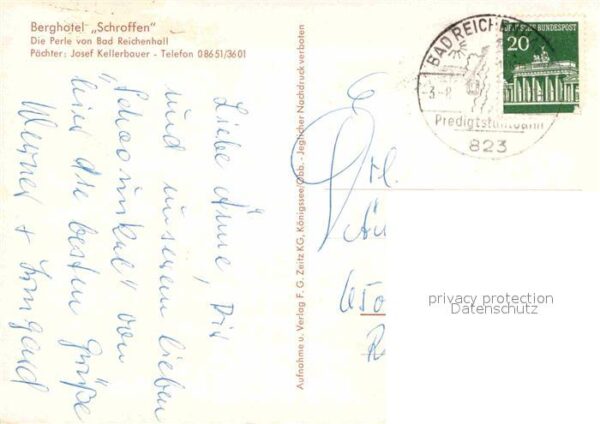 Berghotel „Schroffen"
Die Perle von Bad Reichenhall
Pächter: Josef Kellerbauer - Telefon 08651/3601
Liebe Änne, Dir
und unserem lieben
"Schoo
von
hier die besten Grüße
Werner + Irmgard
Aufnahme u. Verlag F. G. Zeitz KG, Königssee/Obb. - Jeglicher Nachdruck verboten
BAD REICHE
-3.-8
Predigtstuhlbahn
823
DEUTSCHE BUNDESPOST
20
Frl.
650
privacy protection
Datenschutz